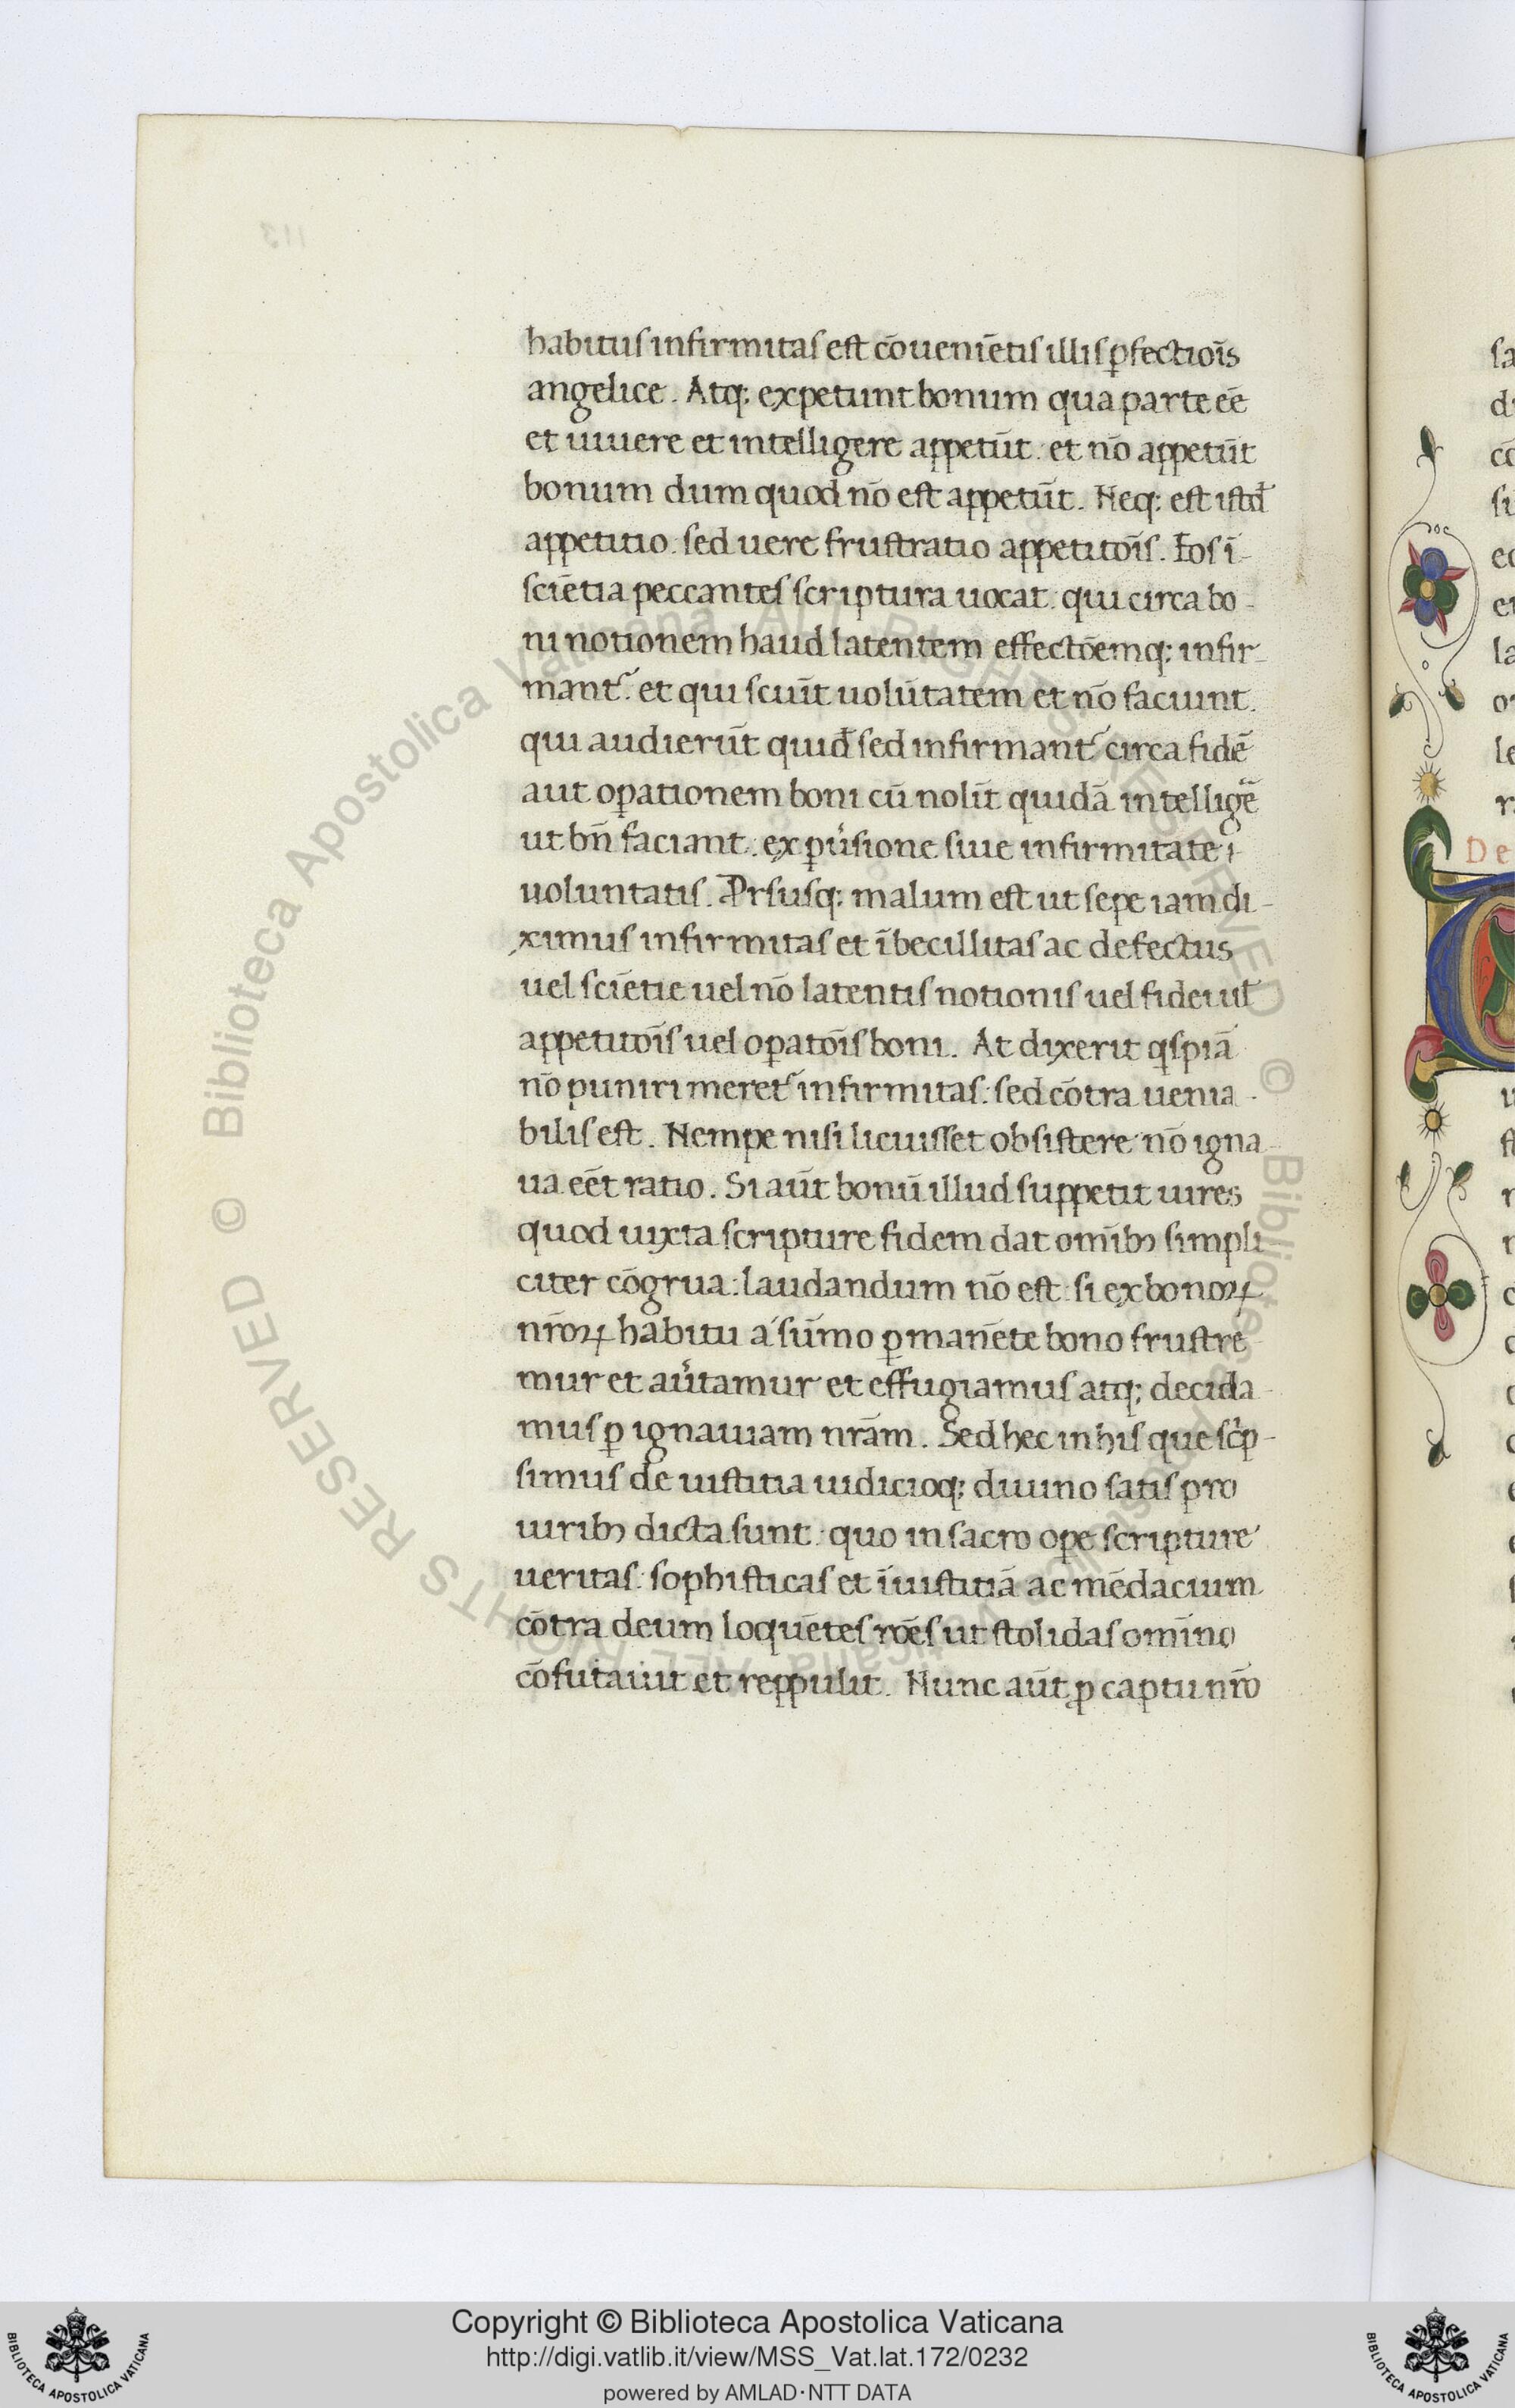 habitus infirmitas est cōueniētis illis ꝑfectiōis
angelice. Atq; expetunt bonum qua parte eē
et uiuere et intelligere appetūt: et nō appetūt
bonum dum quod nō est appetūt. Neq; est istđ
appetitio: sed uere frustratio appetitōis. Eos ī-
sciētia peccantes scriptura uocat: qui circa bo-
ni notionem haud latentem effectōemq; infir-
mantʳ: et qui sciūt uolūtatem et nō faciunt.
qui audierūt quiđ sed infirmantʳ circa fidē
aut oꝑationem boni cū nolīt quidā intelligē
ut bn̄ faciant: ex ꝑuͥsione siue infirmitate
uoluntatis. Prsusq; malum est ut sepe iam di-
ximus infirmitas et ībecillitas ac defectus
uel sciētie uel nō latentis notionis uel fidei uł
appetitōis uel oꝑatōis boni. At dixerit qͥspiā
nō puniri meretʳ infirmitas: sed cōtra uenia-
bilis est. Nempe nisi licuisset obsistere nō igna-
ua eēt ratio. Si aūt bonū illud suppetit uires
quod iuxta scripture fidem dat omībꝫ simpli
citer cōgrua: laudandum nō est: si ex bonoꝝ
nr̄oꝝ habitu a sūmo ꝑmanēte bono frustre-
mur et auͥtamur et effugiamus atq; decida-
mus ꝑ ignauiam nr̄am. Sed hec in his que scͥp-
simus de iustitia iudicioq; diuino satis pro
uiribꝫ dicta sunt: quo in sacro oꝑe scripture
ueritas: sophisticas et īiustitiā ac mēdacium
cōtra deum loquētes rōes ut stolidas omīno
cōfutauit et reppulit. Nunc aūt ꝓ captu nr̄o
Copyright © Biblioteca Apostolica Vaticana
http://digi.vatlib.it/view/MSS_Vat.lat.172/0232
powered by AMLAD·NTT DATA